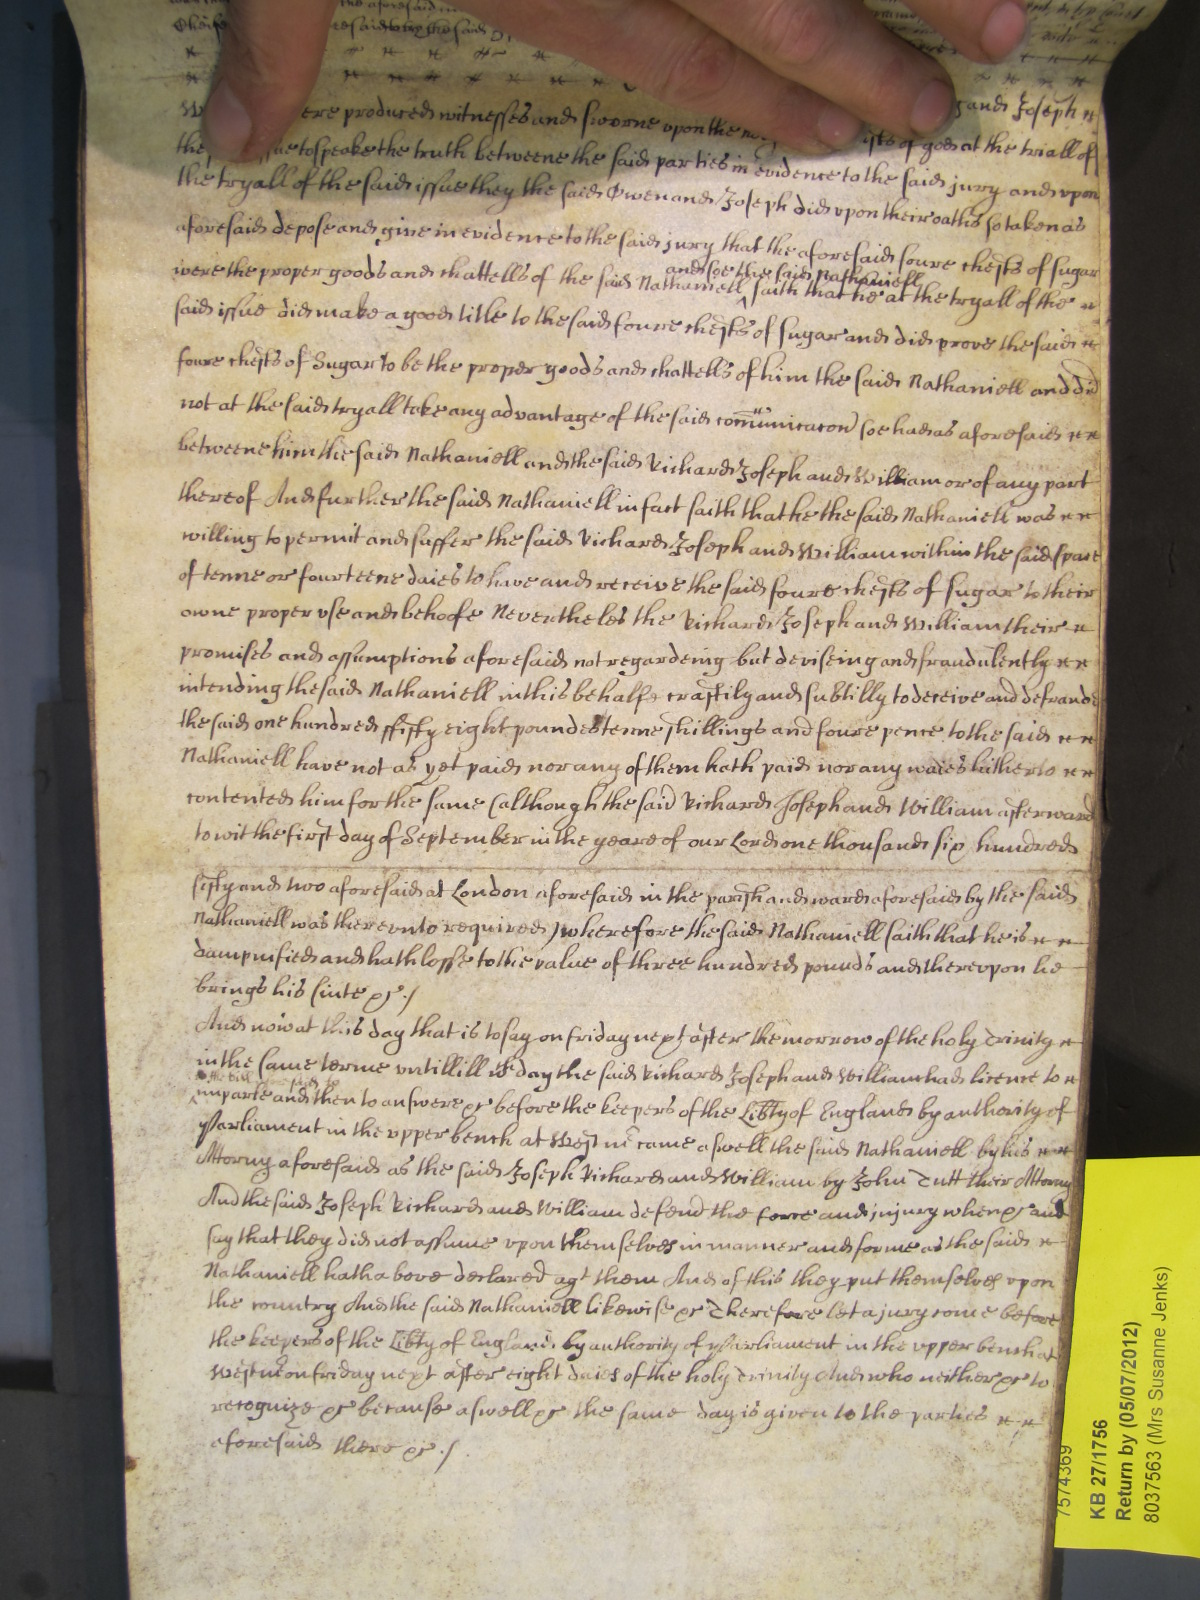 the aforesaid
aforesaid
ere produced witnesses and sworne upon the and Joseph
the to speake the truth betweene the said parties in evidence to the said jury and upon of god at the triall of
the tryall of the said issue they the said Owen and Joseph did upon their oaths so taken as
aforesaid depose and give in evidence to the said jury that the aforesaid foure chests of sugar
were the proper goods and chattells of the said Nathaniell and soe the said Nathaniell saith that he at the tryall of the
said issue did make a good title to the said foure chests of sugar and did prove the said
foure chests of Sugar to be the proper goods and chattells of him the said Nathaniell and did
not at the said tryall take any advantage of the said comunicacon soe had as aforesaid
betweene him the said Nathaniell and the said Richard Joseph and William or of any part
thereof And further the said Nathaniell in fact saith that he the said Nathaniell was
willing to permit and suffer the said Richard Joseph and William within the said space
of tenne or fourteene daies to have and receive the said foure chests of sugar to their
owne proper use and behoofe Nevertheles the Richard Joseph and William their
promises and assumptions aforesaid not regardeing but deviseing and fraudulently
intending the said Nathaniell in this behalfe craftily and subtilly to deceive and defraude
the said one hundred ffifty eight poundes tenne shillings and foure pence to the said
Nathaniell have not as yet paid nor any of them hath paid nor any waies hitherto
contented him for the same (although the said Richard Joseph and William afterward
to wit the first day of September in the yeare of our Lord one thousand six hundred
fifty and two aforesaid at London aforesaid in the parish and ward aforesaid by the said
Nathaniell was thereunto required) wherefore the said Nathaniell saith that he is
dampnified and hath losse to the value of three hundred pounds and thereupon he
brings his suite &c ./
And now at this day that is to say on friday next after the morrow of the holy Trinity
in the same terme untill day the said Richard Joseph and William had licence to
to the bill aforesaid
imparle and then to answere &c before the keepers of the Libty of England by authority of
Parliament in the upper bench at Westm came aswell the said Nathaniell by his
Attorny aforesaid as the said Joseph Richard and William by John Tutt their Attorny
And the said Joseph Richard and William defend the force and injury when &c and
say that they did not assume upon themselves in manner and forme as the said
Nathaniell hath above declared agt them And of this they put themselves upon
the country And the said Nathaniell likewise &c Therefore let a jury come before
the keepers of the Libty of England by authority of Parliament in the upper bench at
Westm on friday next after eight daies of the holy Trinity And who neither &c to
recognize &c because aswell &c the same day is given to the parties
aforesaid there &c ./
7574369
KB 27/1756
Return by (05/07/2012)
8037563 (Mrs Susanne Jenks)